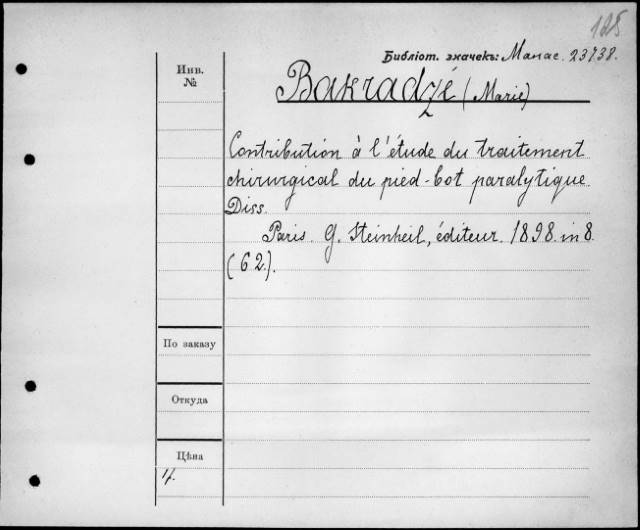 125
Библіот. значекъ: Манас. 23738.
Инв.
№
Bakradzé (Marie)
Contribution à l'étude du traitement
chirurgical du pied-bot paralytique
Diss.
Paris. G. Steinheil, éditeur. 1898. in 8.
(62.).
По заказу
Откуда
Цѣна